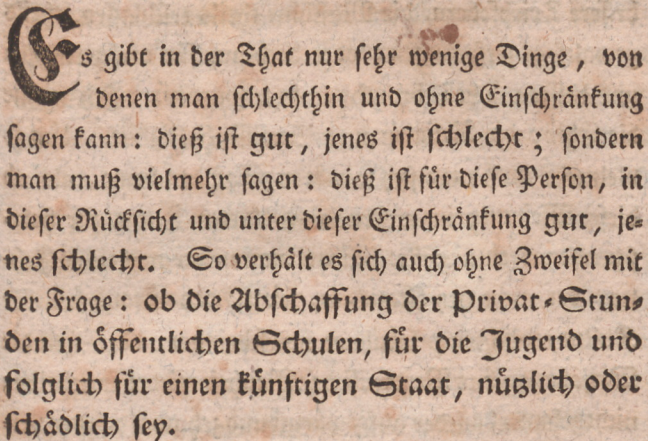 Es gibt in der That nur sehr wenige Dinge, von
denen man schlechthin und ohne Einschränkung
sagen kann: dieß ist gut, jenes ist schlecht; sondern
man muß vielmehr sagen: dieß ist für diese Person, in
dieser Rücksicht und unter dieser Einschränkung gut, je-
nes schlecht. So verhält es sich auch ohne Zweifel mit
der Frage: ob die Abschaffung der Privat-Stun-
den in öffentlichen Schulen, für die Jugend und
folglich für einen künftigen Staat, nützlich oder
schädlich sey.